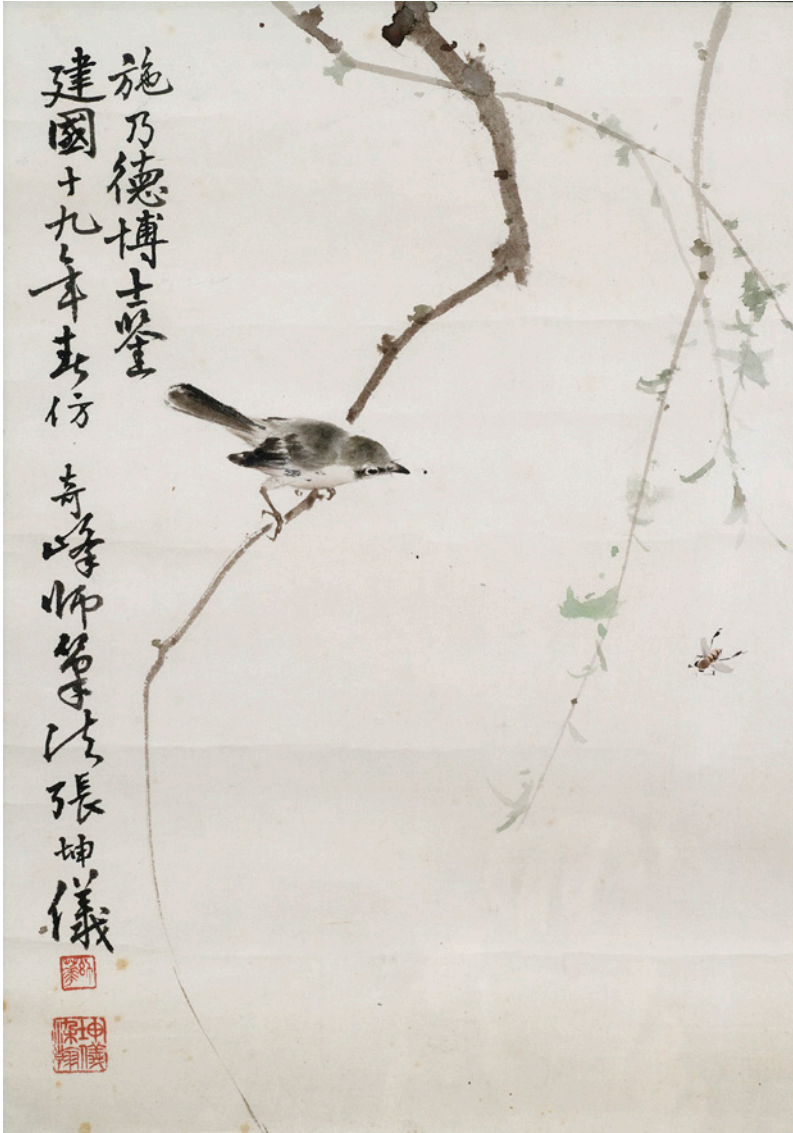 施乃德博士鑒
建國十九年春仿
奇峰師筆法張坤儀
坤儀